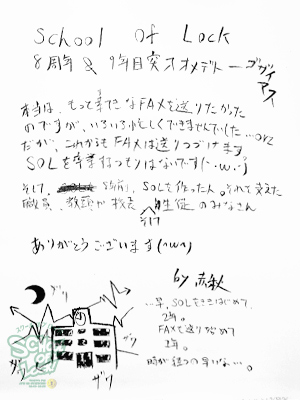 School of Lock
8周年 & 9年目突入オメデトー
ゴザイマス
本当は、もってすてきなFAXを送りたかった
のですが、いろいろ忙しくできませんでした…orz
だが、これからもFAXは送りつづけます
SOLを卒業するつもりはないです(・w・)
そして、8年前、SOLを作った人。それを支えた
職員、教頭、校長、そして生徒のみなさん
ありがとうございます(^w^)
by 赤秋
…早、SOLをききはじめて、
2年。
FAXを送り始めて
1年。
時が経つの早いな…。
ガリ
ザリ
ザリ